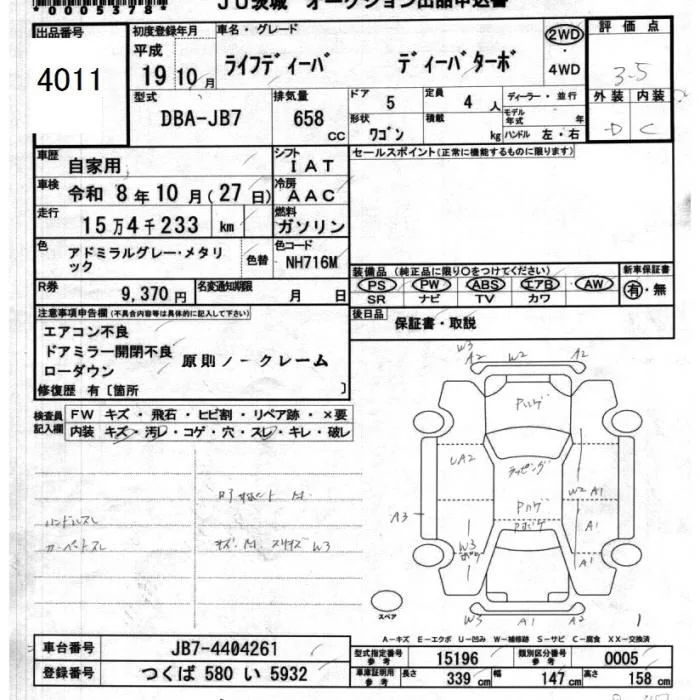 *00053784*
JU茨城 オークション出品申込書
出品番号 4011
初度登録年月 平成 19 10 月
車名・グレード ライフディーバ ディーバターボ
2WD・4WD
評価点 3-5
外装 内装
D C
型式 DBA-JB7
排気量 658 cc
ドア 5
定員 4 人
ディーラー・並行
形状 ワゴン
積載 kg
モデル年式 年
ハンドル 左・右
車歴 自家用
シフト IAT
セールスポイント(正常に機能するものに限ります)
車検 令和 8 年 10 月(27 日)
冷房 AAC
走行 15万4千233 km
燃料 ガソリン
色 アドミラルグレー・メタリック
色替
色コード NH716M
装備品(純正品に限り〇をつけてください)
新車保証書
PS PW ABS エアB AW
有・無
SR ナビ TV カワ
R券 9,370円
名変通知期限 月 日
後日品 保証書・取説
注意事項申告欄(不具合内容等は具体的に記入して下さい)
エアコン不良
ドアミラー開閉不良
ローダウン
原則ノークレーム
修復歴 有〔箇所 〕
検査員記入欄
FW キズ・飛石・ヒビ割・リペア跡・×要
内装 キズ・汚レ・コゲ・穴・スレ・キレ・破レ
ハンドルスレ
カーペットスレ
W3
W3
A2 W2 A2
UA2
W2 A1
A3
A1
W3
A1
W3 A1 A2
スペア
A-キズ E-エクボ U-凹み W-補修跡 S-サビ C-腐食 XX-交換済
車台番号 JB7-4404261
登録番号 つくば 580 い 5932
型式指定番号 参考 15196
類別区分番号 参考 0005
車庫証明用 参考 長さ 339 cm 幅 147 cm 高さ 158 cm